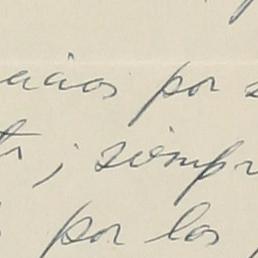 acias por s
; siempr
por los